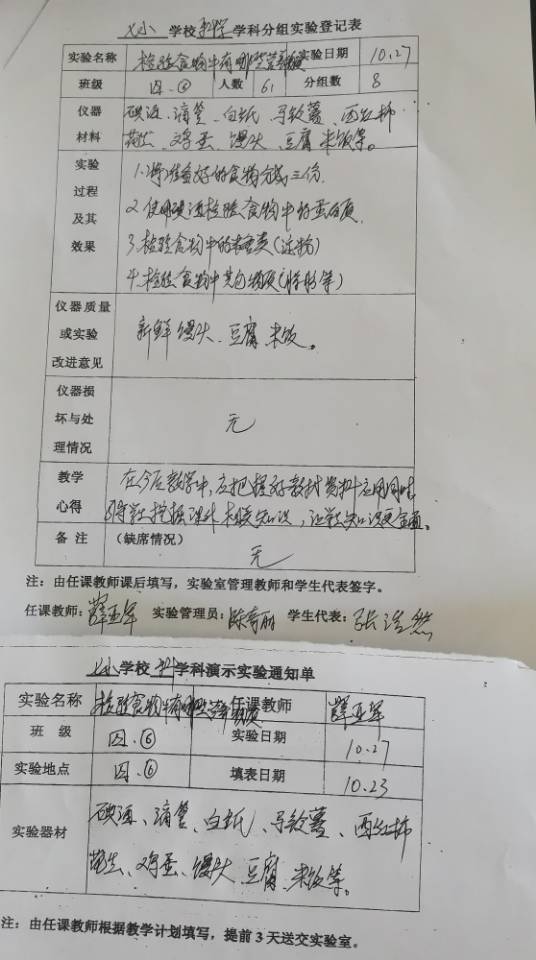 小 学校 科学 学科分组实验登记表
实验名称 检验食物中有哪些营养 实验日期 10.27
班级 四.⑥ 人数 61 分组数 8
仪器材料 碘酒、滴管、白纸、马铃薯、西红柿
花生、鸡蛋、馒头、豆腐、米饭等。
实验过程及其效果 1.将准备好的食物分成三份.
2.使用碘酒检验食物中的蛋白质.
3.检验食物中的糖类(淀粉)
4.检验食物中其它物质(脂肪等)
仪器质量或实验改进意见 新鲜馒头、豆腐、米饭。
仪器损坏与处理情况 无
教学心得 在今后教学中,应把握好教材资料应用同时
学生挖掘课外相关知识,让学生知识更全面。
备注 (缺席情况)
无
注：由任课教师课后填写，实验室管理教师和学生代表签字。
任课教师：薛亚军 实验管理员：陈秀丽 学生代表：张浩然
小 学校 科学 学科演示实验通知单
实验名称 检验食物中有哪些营养 任课教师 薛亚军
班 级 四.⑥ 实验日期 10.27
实验地点 四.⑥ 填表日期 10.23
实验器材 碘酒、滴管、白纸、马铃薯、西红柿
花生、鸡蛋、馒头、豆腐、米饭等。
注：由任课教师根据教学计划填写，提前 3 天送交实验室。